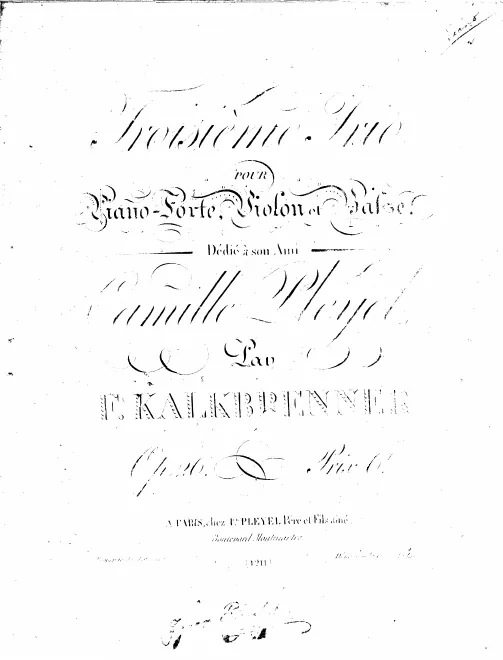 Troisième Trio
POUR
Piano-Forte, Violon et Basse.
Dédié à son Ami
Camille Pleyel,
Par
F. KALKBRENNER
Op. 26. Prix
A PARIS, chez Ie. PLEYEL Père et Fils aîné,
Boulevard Montmartre
(1211)